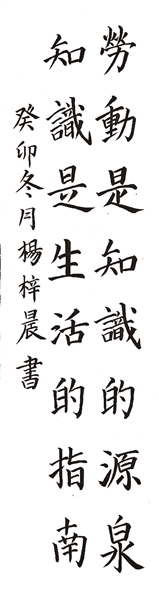 勞動是知識的源泉
知識是生活的指南
癸卯冬月楊梓晨書